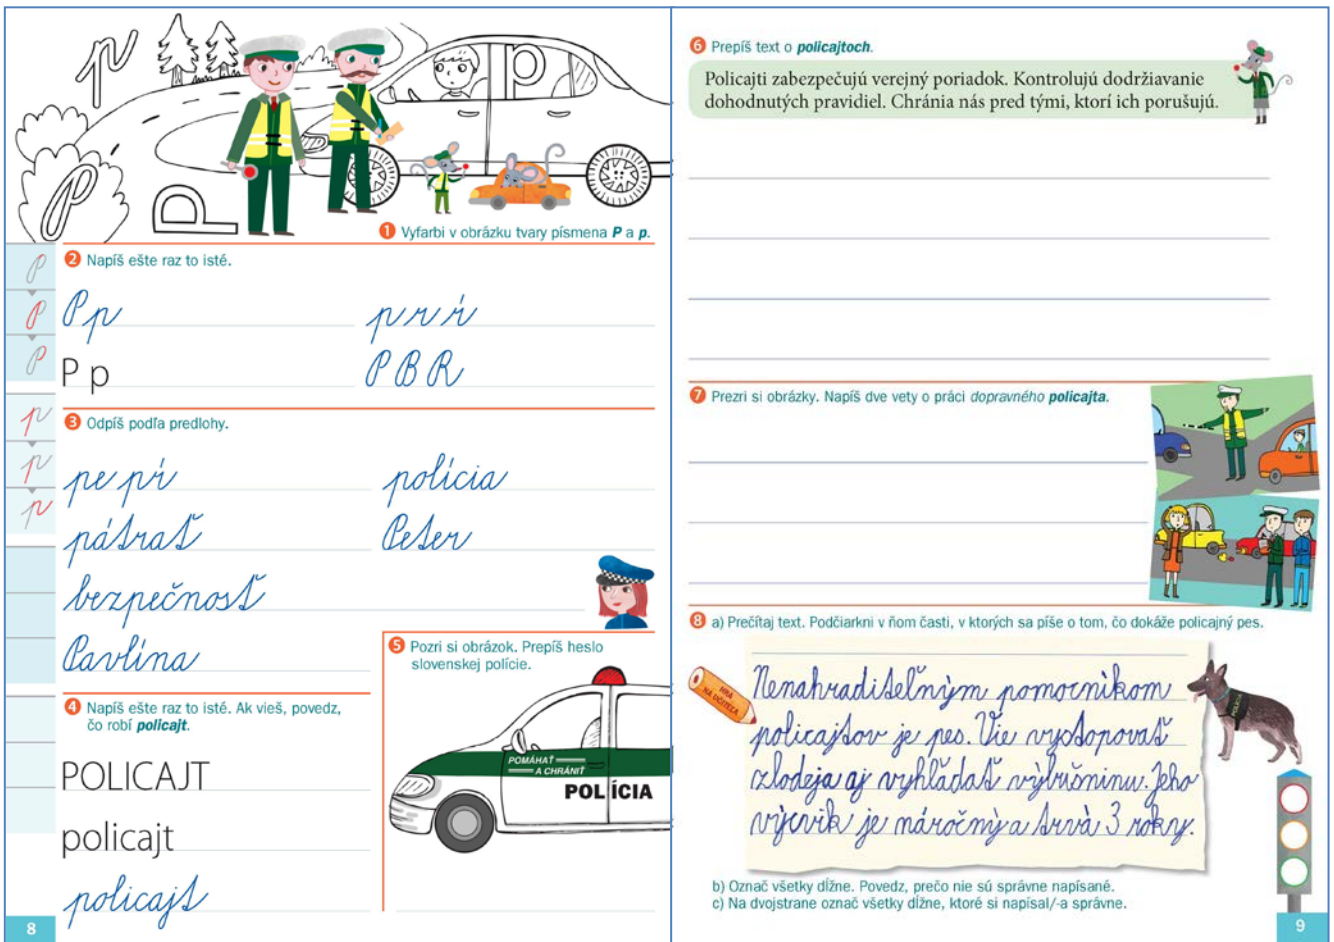 p
P
P
p
1 Vyfarbi v obrázku tvary písmena P a p.
2 Napíš ešte raz to isté.
P p
p r ŕ
P p
P B R
3 Odpíš podľa predlohy.
pe pŕ
polícia
pátrať
Peter
bezpečnosť
Pavlína
4 Napíš ešte raz to isté. Ak vieš, povedz,
čo robí policajt.
POLICAJT
policajt
policajt
5 Pozri si obrázok. Prepíš heslo
slovenskej polície.
POMÁHAŤ
A CHRÁNIŤ
POLÍCIA
8
6 Prepíš text o policajtoch.
Policajti zabezpečujú verejný poriadok. Kontrolujú dodržiavanie
dohodnutých pravidiel. Chránia nás pred tými, ktorí ich porušujú.
7 Prezri si obrázky. Napíš dve vety o práci dopravného policajta.
8 a) Prečítaj text. Podčiarkni v ňom časti, v ktorých sa píše o tom, čo dokáže policajný pes.
HRA
NA UČITEĽA
Nenahraditeľným pomocníkom
policajtov je pes. Vie vystopovať
zlodeja aj vyhľadať výbušninu. Jeho
výcvik je náročný a trvá 3 roky.
POLÍCIA
b) Označ všetky dĺžne. Povedz, prečo nie sú správne napísané.
c) Na dvojstrane označ všetky dĺžne, ktoré si napísal/-a správne.
9